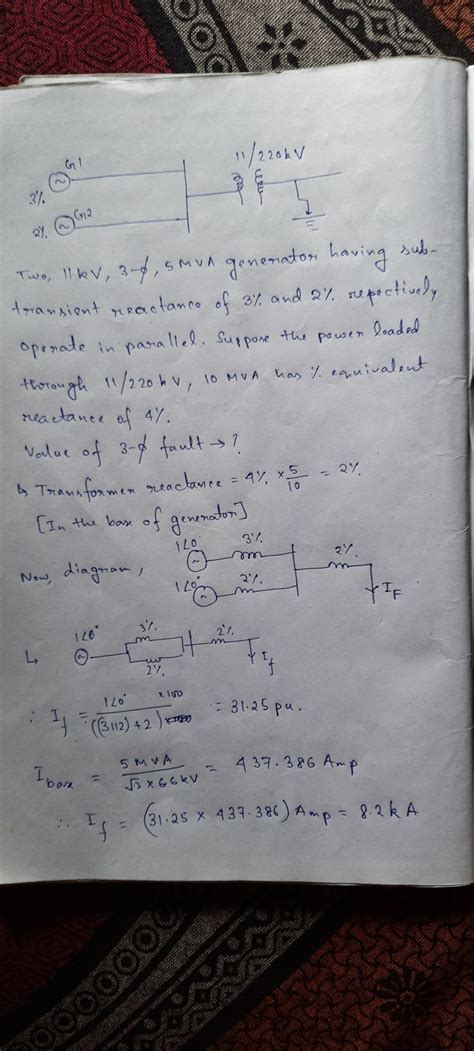 G1
11/220kV
3%
2%
G2
Two, 11kV, 3-ϕ, 5MVA generator having sub-
transient reactance of 3% and 2% repectively
operate in parallel. Suppose the power loaded
through 11/220kV, 10 MVA has % equivalent
reactance of 4%.
Value of 3-ϕ fault → ?
↳ Transformer reactance = 4% × 5/10 = 2%
[In the base of generator]
1∠0° 3% 2%
Now, diagram, 1∠0° 2% I_F
1∠0° 3% 2%
2% I_f
∴ I_f = 1∠0° ×100 / ((3||2)+2) = 31.25 pu.
I base = 5 MVA / √3 × 66kV = 437.386 Amp
∴ I_f = (31.25 × 437.386) Amp = 8.2 kA